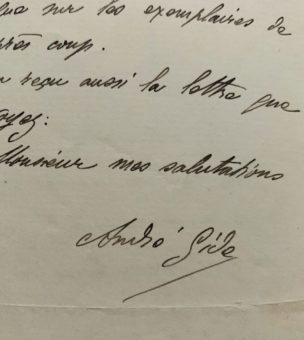 sur les exemplaires de
après coup.
reçu aussi la lettre que
Monsieur mes salutations
André Gide